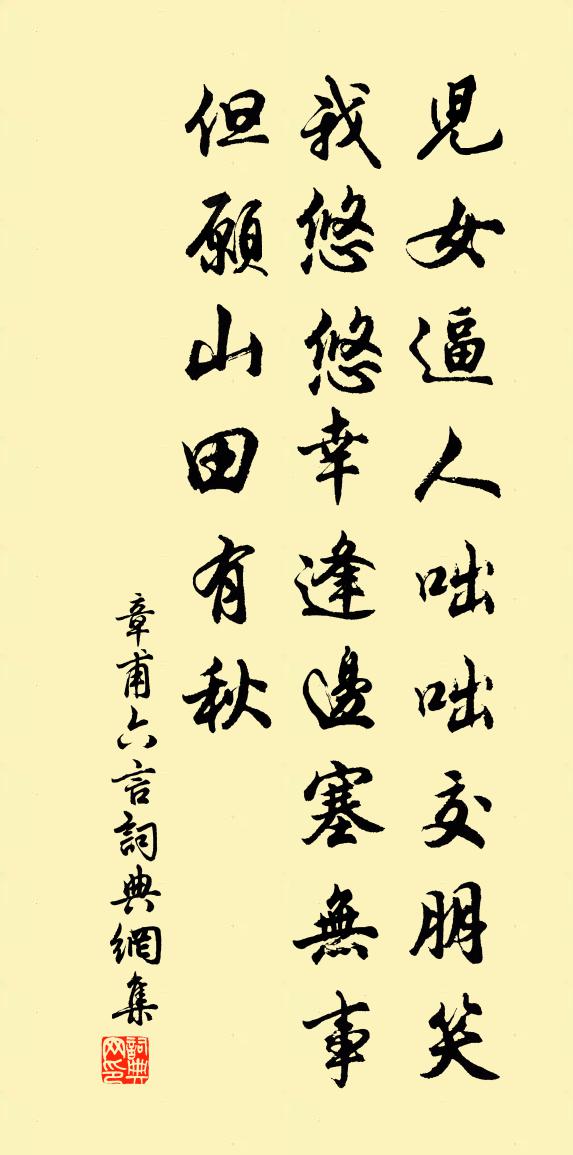 児女逼人咄咄交朋笑
我悠悠幸逢邊塞無事
但願山田有秋
章甫六言詞典網集
詞典網印